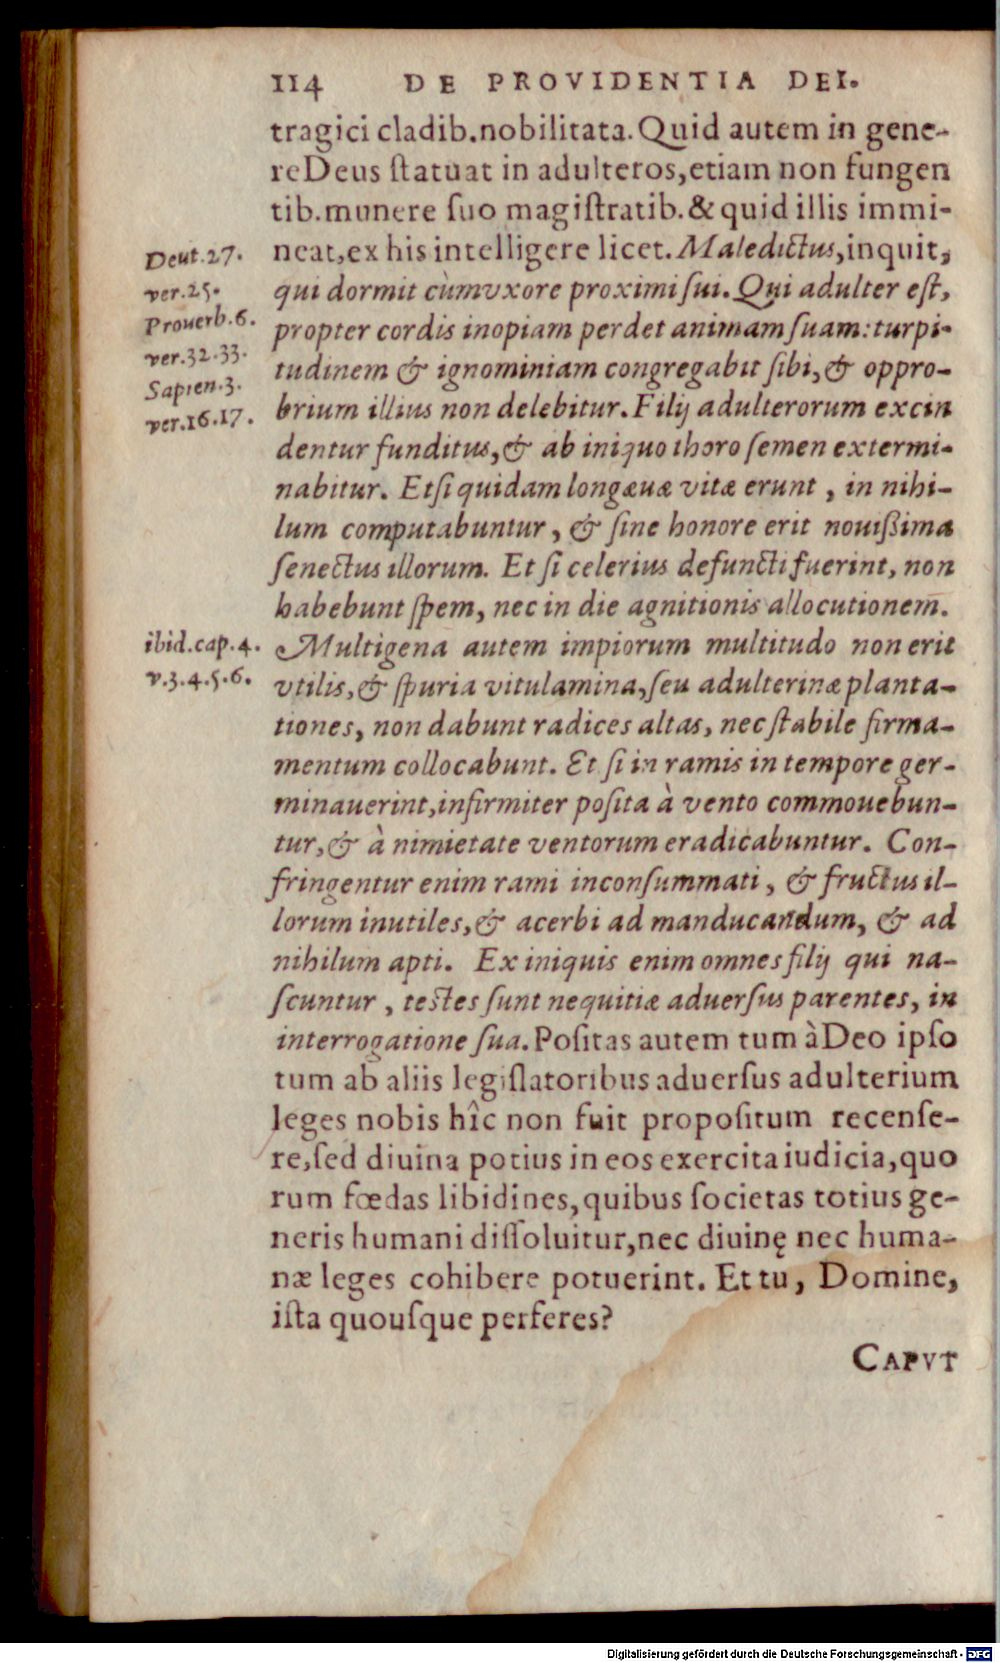 114 DE PROVIDENTIA DEI.
tragici cladib.nobilitata. Quid autem in gene-
re Deus ſtatuat in adulteros, etiam non fungen
tib. munere ſuo magiſtratib. & quid illis immi-
neat, ex his intelligere licet. Maledictus, inquit,
Deut.27.
ver.25.
qui dormit cùm vxore proximi ſui. Qui adulter eſt,
Prouerb.6.
propter cordis inopiam perdet animam ſuam: turpi-
ver.32.33.
tudinem & ignominiam congregabit ſibi, & oppro-
Sapien.3.
brium illius non delebitur. Filij adulterorum excin
ver.16.17.
dentur funditus, & ab iniquo thoro ſemen extermi-
nabitur. Et ſi quidam longæuæ vitæ erunt, in nihi-
lum computabuntur, & ſine honore erit nouißima
ſenectus illorum. Et ſi celerius defuncti fuerint, non
habebunt ſpem, nec in die agnitionis allocutionem.
ibid.cap.4.
Multigena autem impiorum multitudo non erit
v.3.4.5.6.
vtilis, & ſpuria vitulamina, ſeu adulterinæ planta-
tiones, non dabunt radices altas, nec ſtabile firma-
mentum collocabunt. Et ſi in ramis in tempore ger-
minauerint, infirmiter poſita à vento commouebun-
tur, & à nimietate ventorum eradicabuntur. Con-
fringentur enim rami inconſummati, & fructus il-
lorum inutiles, & acerbi ad manducandum, & ad
nihilum apti. Ex iniquis enim omnes filij qui na-
ſcuntur, teſtes ſunt nequitiæ aduerſus parentes, in
interrogatione ſua. Poſitas autem tum à Deo ipſo
tum ab aliis legiſlatoribus aduerſus adulterium
leges nobis hîc non fuit propoſitum recenſe-
re, ſed diuina potius in eos exercita iudicia, quo
rum fœdas libidines, quibus ſocietas totius ge-
neris humani diſſoluitur, nec diuinę nec huma-
næ leges cohibere potuerint. Et tu, Domine,
iſta quouſque perferes?
CAPVT
Digitalisierung gefördert durch die Deutsche Forschungsgemeinschaft - DFG